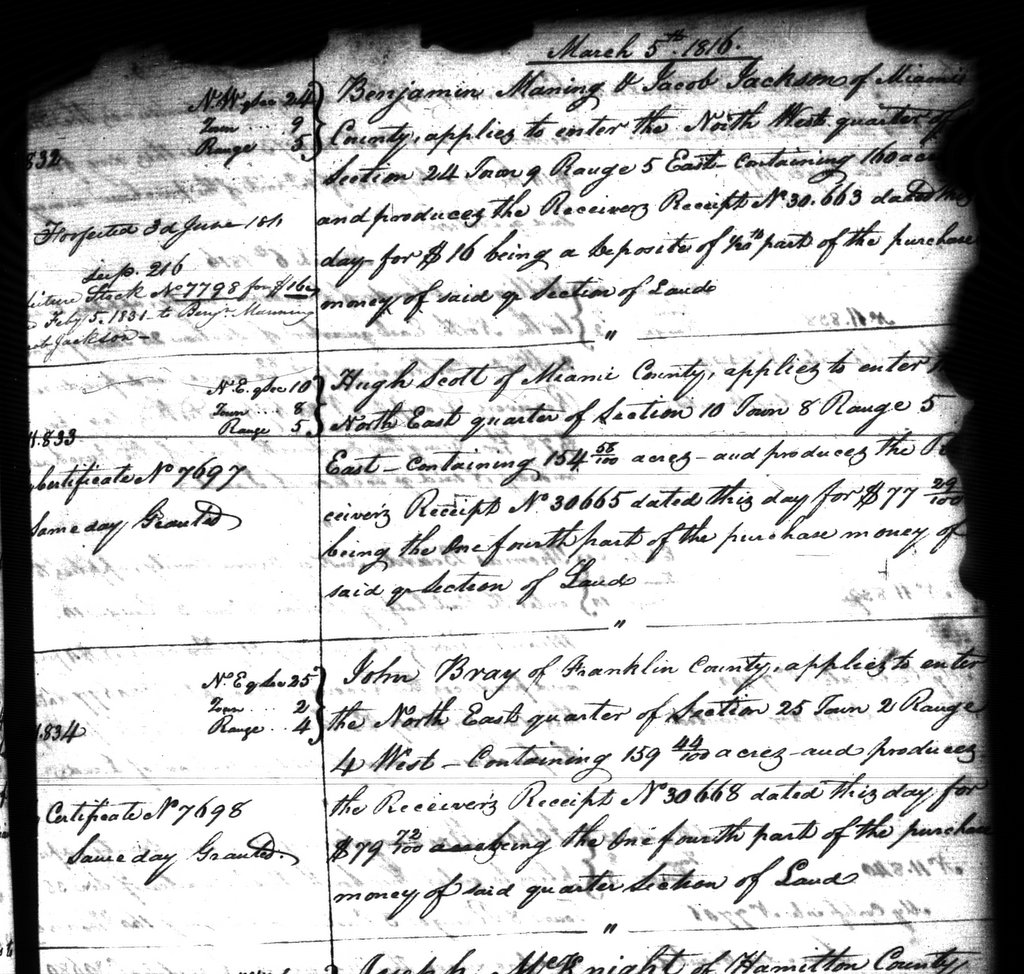 March 5th. 1816.
N.W. qr Sec 24
Town ... 9
Range 5
832
Benjamin Maning & Jacob Jackson of Miami
County, applies to enter the North West quarter of
Section 24 Town 9 Range 5 East - Containing 160 acr
and produces the Receivers Receipt No 30.663 dated this
day - for $16 being a Deposite of 1/20th part of the purchase
money of said qr Section of Land
Forfeited 3d June 181
216
Stock No 7798 for $16
Feby 5. 1831. to Benjn. Manning
Jackson -
"
N.E. qr Sec 10
Town ... 8
Range 5
.833
Certificate No 7697
Same day Granted
Hugh Scott of Miami County, applies to enter
North East quarter of Section 10 Town 8 Range 5
East - Containing 154 58/100 acres - and produces the Re
ceivers Receipt No 30665 dated this day for $77 29/100
being the One fourth part of the purchase money of
said qr Section of Land
"
N.E qr Sec 25
Town ... 2
Range .. 4
.834
Certificate No 7698
Same day Granted.
John Bray of Franklin County, applies to enter
the North East quarter of Section 25 Town 2 Range
4 West - Containing 159 44/100 acres - and produces
the Receivers Receipt No 30668 dated this day for
$79 72/100 being the One fourth part of the purchase
money of said quarter Section of Land
"
Joseph McKnight of Hamilton County